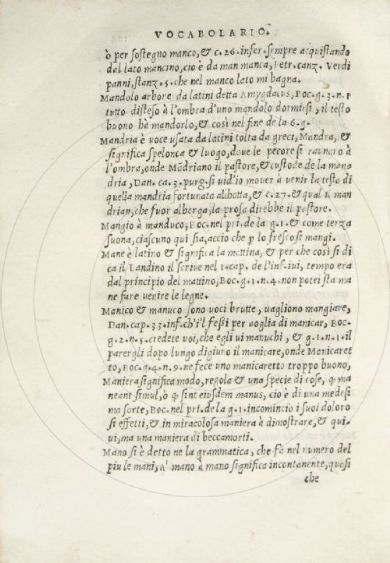 VOCABOLARIO.
ò per sostegno manco, & c. 26. infer. sempre acquistando
del lato mancino, cio è da man manca, Petr. canz. Verdi
panni, stanz. 5. che nel manco lato mi bagna.
Mandolo arbore da latini detta Amygdalus, Boc. g. 3. n. p
tutto disteso à l'ombra d'uno mandolo dormiesi, il testo
buono hà mandorlo, & così nel fine de la 6. g.
Mandria è voce usata da latini tolta da greci, Mandra, &
significa spelonca & luogo, doue le pecore si raunaro à
l'ombra, onde Madriano il pastore, & custode de la man
dria, Dan. ca. 3. purg. si uid'io mouer à uenir la testa di
quella mandria fortunata allhotta, & c. 27. & qual il man
drian, che fuor alberga, la prosa direbbe il pastore.
Mangio à manduco, Boc. nel pri. de la g. 1. & come terza
suona, ciascuno qui sia, accio che p lo fresco si mangi.
Mane è latino & significa la mattina, & per che così si di
ca il Landino il scriue nel 1. cap. de l'inf. iui, tempo era
dal principio del mattino, Boc. g. 1. n. 4. non potei sta ma
ne fare uenire le legne.
Manico & manuco sono uoci brutte, uagliono mangiare,
Dan. cap. 33. inf. ch'il fessi per uoglia di manicar, Boc.
g. 2. n. 5. credete uoi, che egli ui manuchi, & g. 1. n. 1. il
parergli dopo lungo digiuno il manicare, onde Manicaret
to, Boc. g. 4. n. 9. ne fece uno manicaretto troppo buono,
Maniera significa modo, regola & una specie di cose, q. ma
neant simul, ò q. sint eiusdem manus, cio è di una medesi
ma sorte, Boc. nel pri. de la g. 1. incomincio i suoi doloro
si effetti, & in miracolosa maniera à dimostrare, & qui-
ui, ma una maniera di beccamorti.
Mano si è detto ne la grammatica, che fà nel numero del
piu le mani, à mano à mano significa incontanente, quasi
che